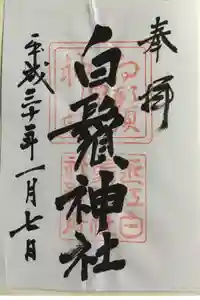 奉拝
白鬚神社
平成三十一年一月七日